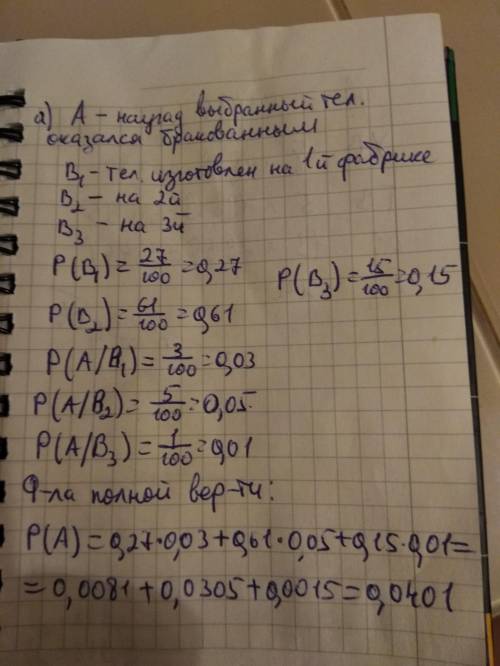 а) А – наугад выбранный тел.
оказался бракованным
B₁ – тел. изготовлен на 1й фабрике
B₂ – на 2й
B₃ – на 3й
P(B₁) = 27/100 = 0,27
P(B₃) = 15/100 = 0,15
P(B₂) = 61/100 = 0,61
P(A/B₁) = 3/100 = 0,03
P(A/B₂) = 5/100 = 0,05.
P(A/B₃) = 1/100 = 0,01
Ф-ла полной вер-ти:
P(A) = 0,27·0,03+0,61·0,05+0,15·0,01=
= 0,0081+0,0305+0,0015=0,0401